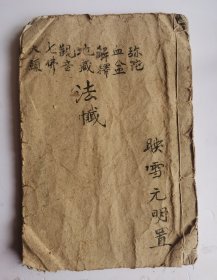 弥陀
血盆
解釋
地藏
觀音
七佛
大願
法懺
映雪元明置